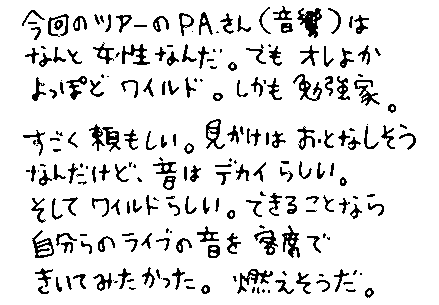 今回のツアーのP.A.さん(音響)は
なんと女性なんだ。でもオレよか
よっぽどワイルド。しかも勉強家。
すごく頼もしい。見かけはおとなしそう
なんだけど、音はデカイらしい。
そしてワイルドらしい。できることなら
自分らのライブの音を客席で
きいてみたかった。燃えそうだ。